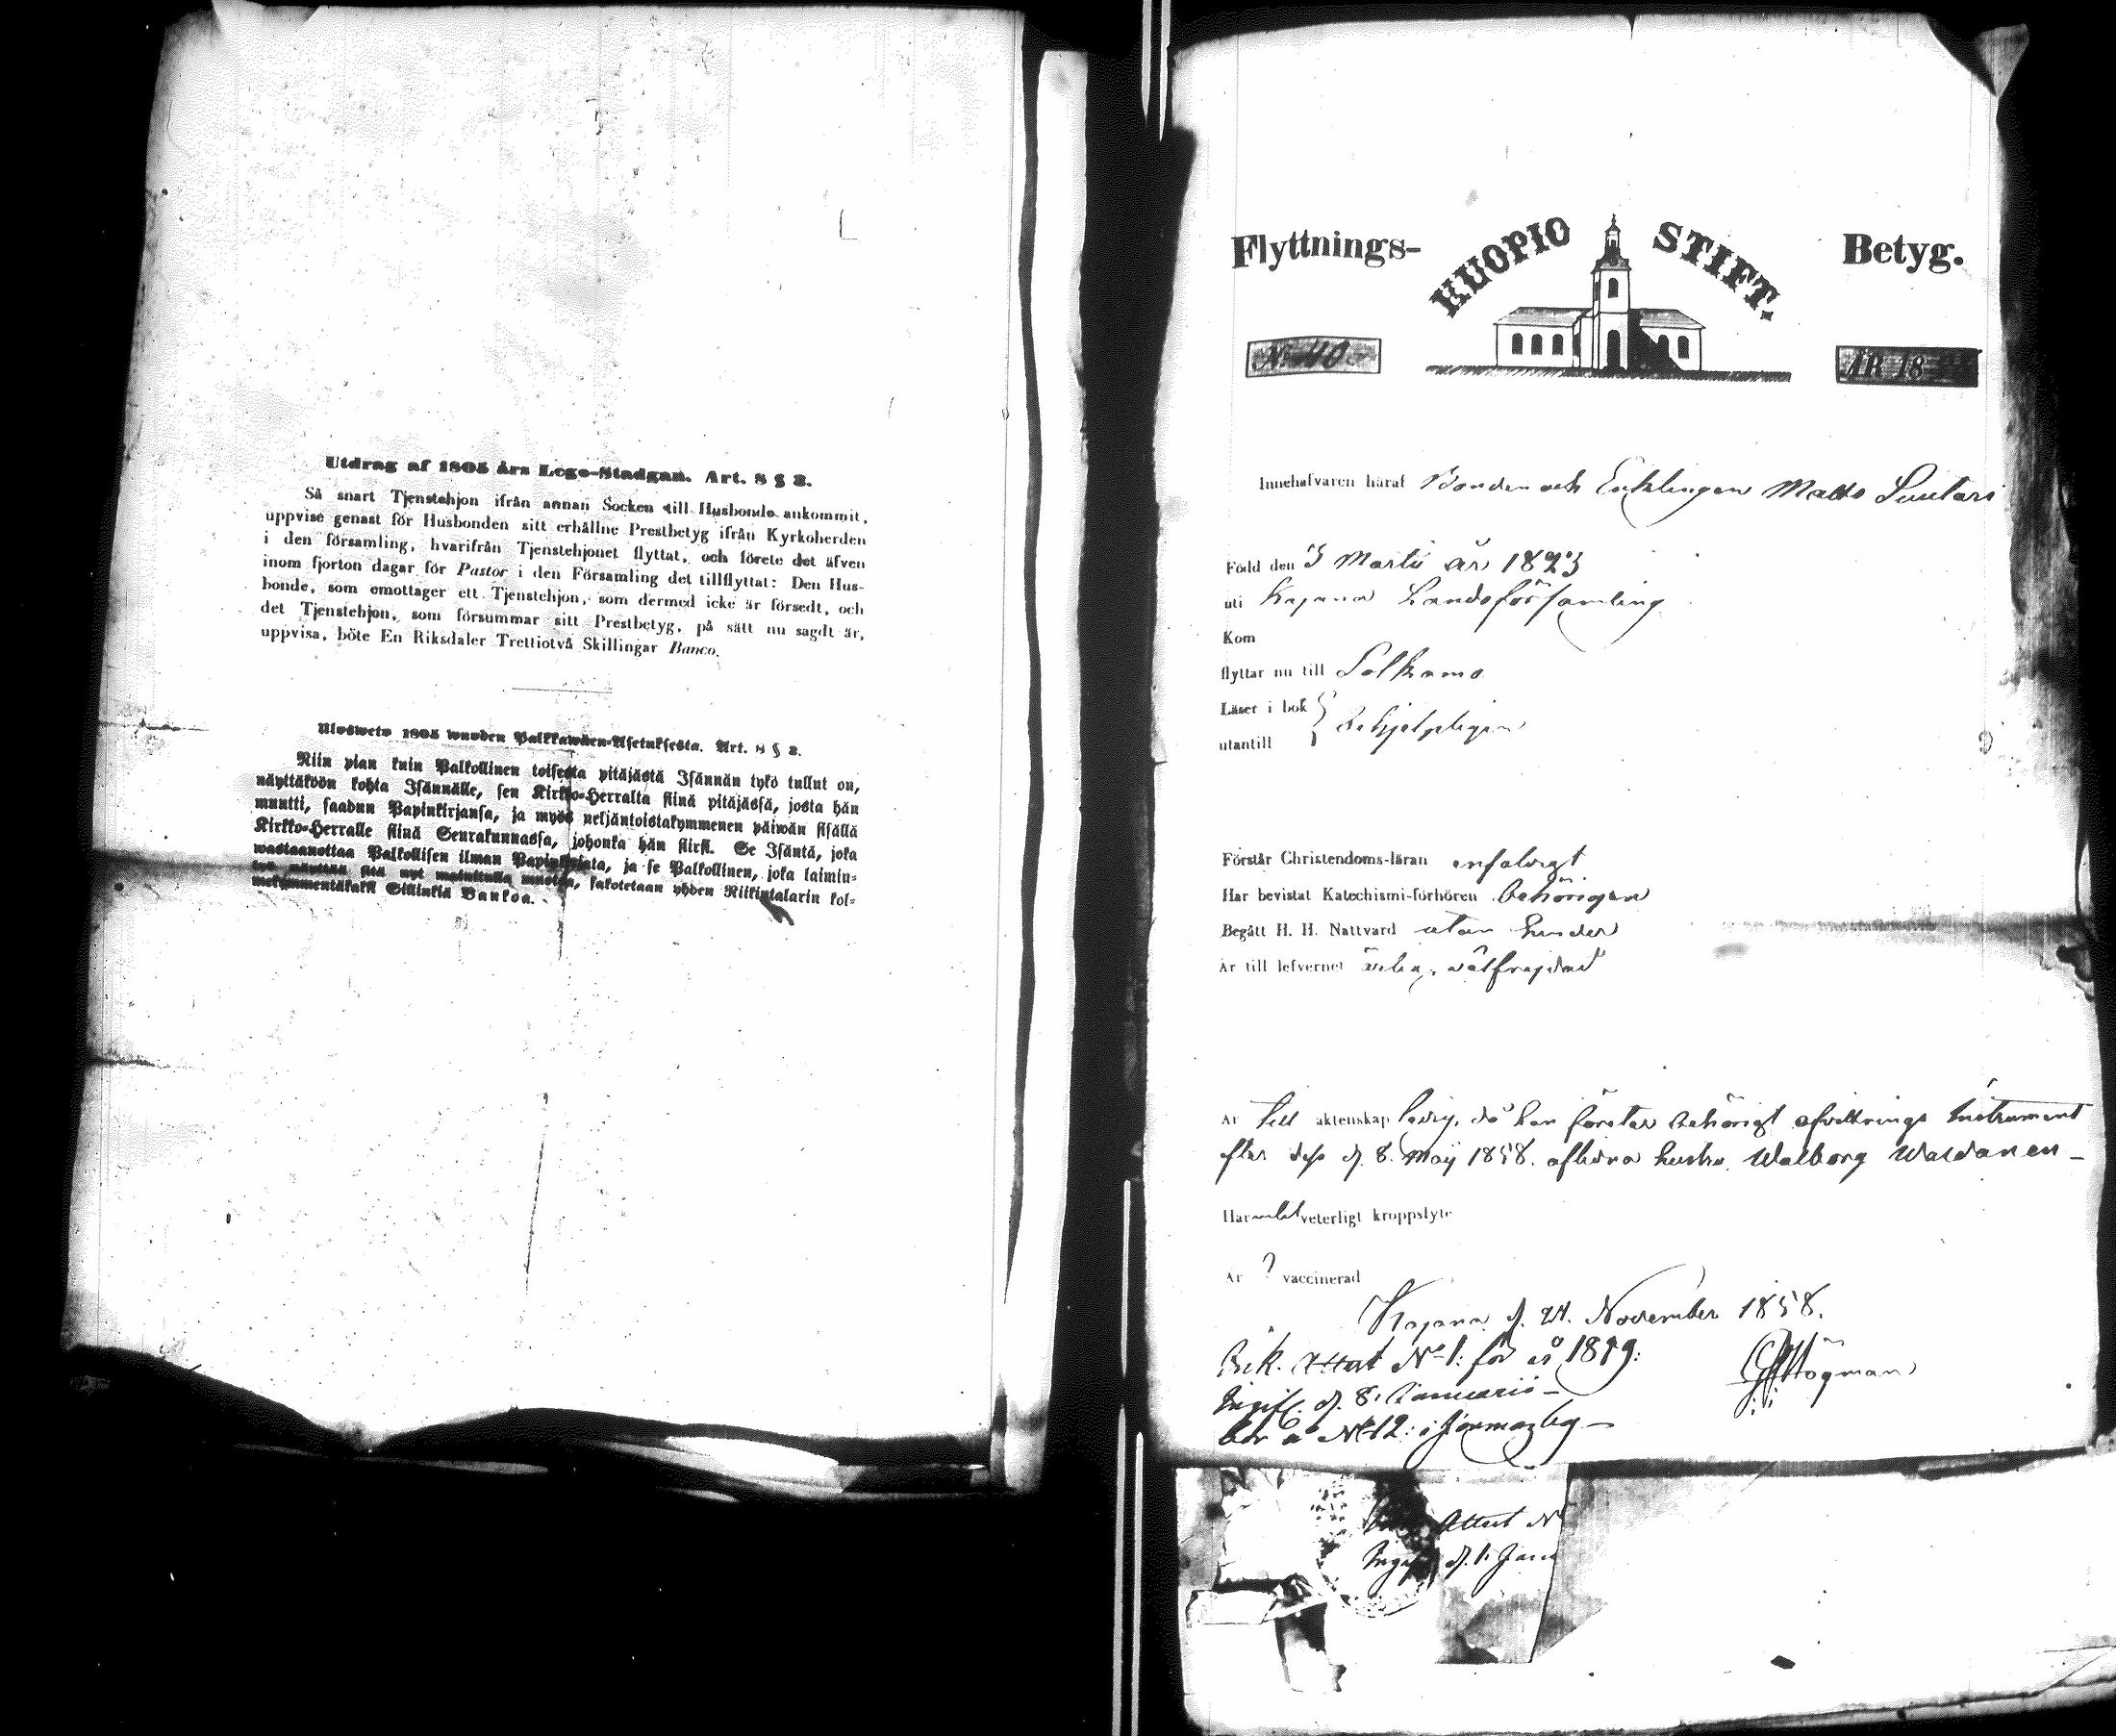 Utdrag af 1805 års Lego-Stadgan. Art. 8 § 2.
Så snart Tjenstehjon ifrån annan Socken till Husbonde ankommit,
uppvise genast för Husbonden sitt erhållne Prestbetyg ifrån Kyrkoherden
i den församling, hvarifrån Tjenstehjonet flyttat, och förete det äfven
inom fjorton dagar för Pastor i den Församling det tillflyttat: Den Hus-
bonde, som emottager ett Tjenstehjon, som dermed icke är försedt, och
det Tjenstehjon, som försummar sitt Prestbetyg, på sätt nu sagdt är,
uppvisa, böte En Riksdaler Trettiotvå Skillingar Banco.
Ulosweto 1805 wuoden Palkkawäen-Asetuksesta. Art. 8 § 2.
Niin pian kuin Palkollinen toisesta pitäjästä Isännän tykö tullut on,
näyttäköön kohta Isännälle, sen Kirkko-Herralta siinä pitäjässä, josta hän
muutti, saadun Papinkirjansa, ja myös neljäntoistakymmenen päiwän sisällä
Kirkko-Herralle siinä Seurakunnassa, johonka hän siirsi. Se Isäntä, joka
wastaanottaa Palkollisen ilman Papinkirjata, ja se Palkollinen, joka laimin-
lyö näyttää sitä nyt mainitulla muotoa, sakotetaan yhden Riikintalarin kol-
mekymmentäkaksi Sillinkiä Bankoa.
Flyttnings- KUOPIO STIFT. Betyg.
No 40 ÅR 18
Innehafvaren häraf Bonden och Enklingen Matts Suutari
Född den 3 Martii år 1823
uti Kajana Landsförsamling
Kom
flyttar nu till Sotkamo
Läser i bok
utantill behjelpligen
Förstår Christendoms-läran enfaldigt
Har bevistat Katechismi-förhören behörigen
Begått H. H. Nattvard utan hinder
Är till lefvernet välfrejdad
Är till äktenskap ledig, då han företer behörigt afvittrings Instrument
efter dess d. 8. Maij 1858. aflidna hustru, Walborg
Har vetterligt kroppslyte
Är ? vaccinerad
Kajana d. 24. November 1858.
Bek. Attest No 1: för år 1859: Högman
Ingifv. d. 8. Januarii
bor å No 12: i
Attest N
Ingif d. 1. Janu